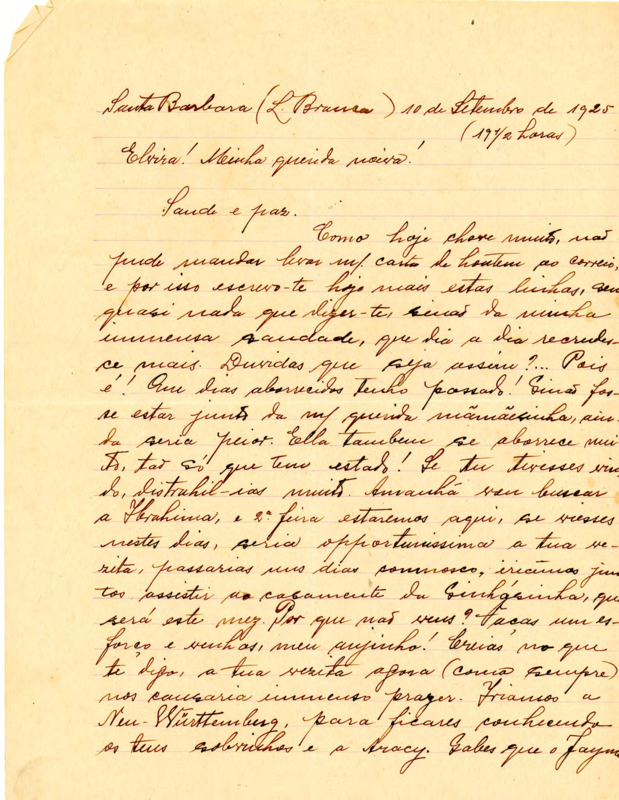 Santa Barbara (L. Branca) 10 de Setembro de 1925
(19 1/2 horas)
Elvira! Minha querida noiva!
Saude e paz.
Como hoje chove muito, não
pude mandar levar m/ carta de hontem ao correio,
e por isso escrevo-te hoje mais estas linhas, sem
quasi nada que dizer-te, sinão da minha
immensa saudade, que dia a dia recrudes-
ce mais. Duvidas que seja assim?... Pois
é! Que dias aborrecidos tenho passado! Sinão fos-
se estar junto da m/ querida mãmãesinha, ain-
da seria peior. Ella tambem se aborrece mui
to, tão só que tem estado! Se tu tivesses vin
do, distrahil-ias muito. Amanhã vou buscar
a Ibrahima, e 2ª feira estaremos aqui, se viesses
nestes dias, seria opportunissima a tua ve-
zita, passarias uns dias comnosco, iriamos jun
tos assistir ao casamento da Sinhásinha, que
será este mez. Por que não vens? Faças um es-
forço e venhas, meu anjinho! Creias no que
te digo, a tua vezita agora (como sempre)
nos causaria immenso prazer. Iriamos a
Neu-Württemberg, para ficares conhecendo
os teus sobrinhos e a Aracy. Sabes que o Jayme